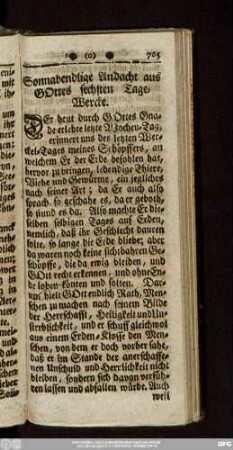 (o) 705
Sonnabendlige Andacht aus
GOttes sechsten Tage-
Wercke.
DEr heut durch GOttes Gna-
de erlebte letzte Wochen-Tag,
erinnert uns des letzten Wer-
ckel-Tages meines Schöpffers, an
welchem Er der Erde befohlen hat,
hervor zu bringen, lebendige Thiere,
Viehe und Gewürme, ein jegliches
nach seiner Art; da Er auch also
sprach, so geschahe es, da er geboth,
so stund es da. Also machte Er die-
selben selbigen Tages auf Erden,
nemlich, daß ihr Geschlecht dauren
solte, so lange die Erde bliebe, aber
da waren noch keine sichtbahren Ge-
schöpffe, die da ewig bleiben, und
GOtt recht erkennen, und ohne En-
de loben könten und solten. Dar-
um hielt GOtt endlich Rath, Men-
schen zu machen nach seinem Bilde
der Herrschafft, Heiligkeit und Un-
sterblichkeit, und er schuff gleichwol
aus einem Erden-Klosse den Men-
schen, von dem er doch vorher sahe,
daß er im Stande der anerschaffe-
nen Unschuld und Herrlichkeit nicht
bleiben, sondern sich davon verfüh-
ren lassen und abfallen würde. Auch
weil